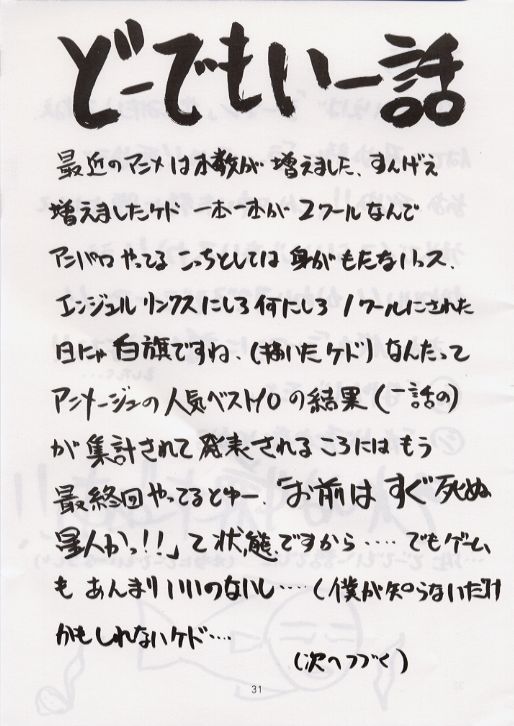 どーでもいー話
最近のアニメは本数が増えました、すんげえ
増えましたケド 一本一本が2クールなんで
アンパロやってる こっちとしては身がもたないっス、
エンジェルリンクスにしろ何にしろ1クールにされた
日にゃ白旗ですね、(描いたケド) なんたって
アニメージュの人気ベスト10の結果(一話の)
が集計されて発表されるころにはもう
最終回やってるとゆー、「お前は すぐ死ぬ
星人かっ!!」て状態ですから‥‥でもゲーム
も あんまりいいのないし‥‥(僕が知らないだけ
かもしれないケド‥‥
(次へつづく)
31